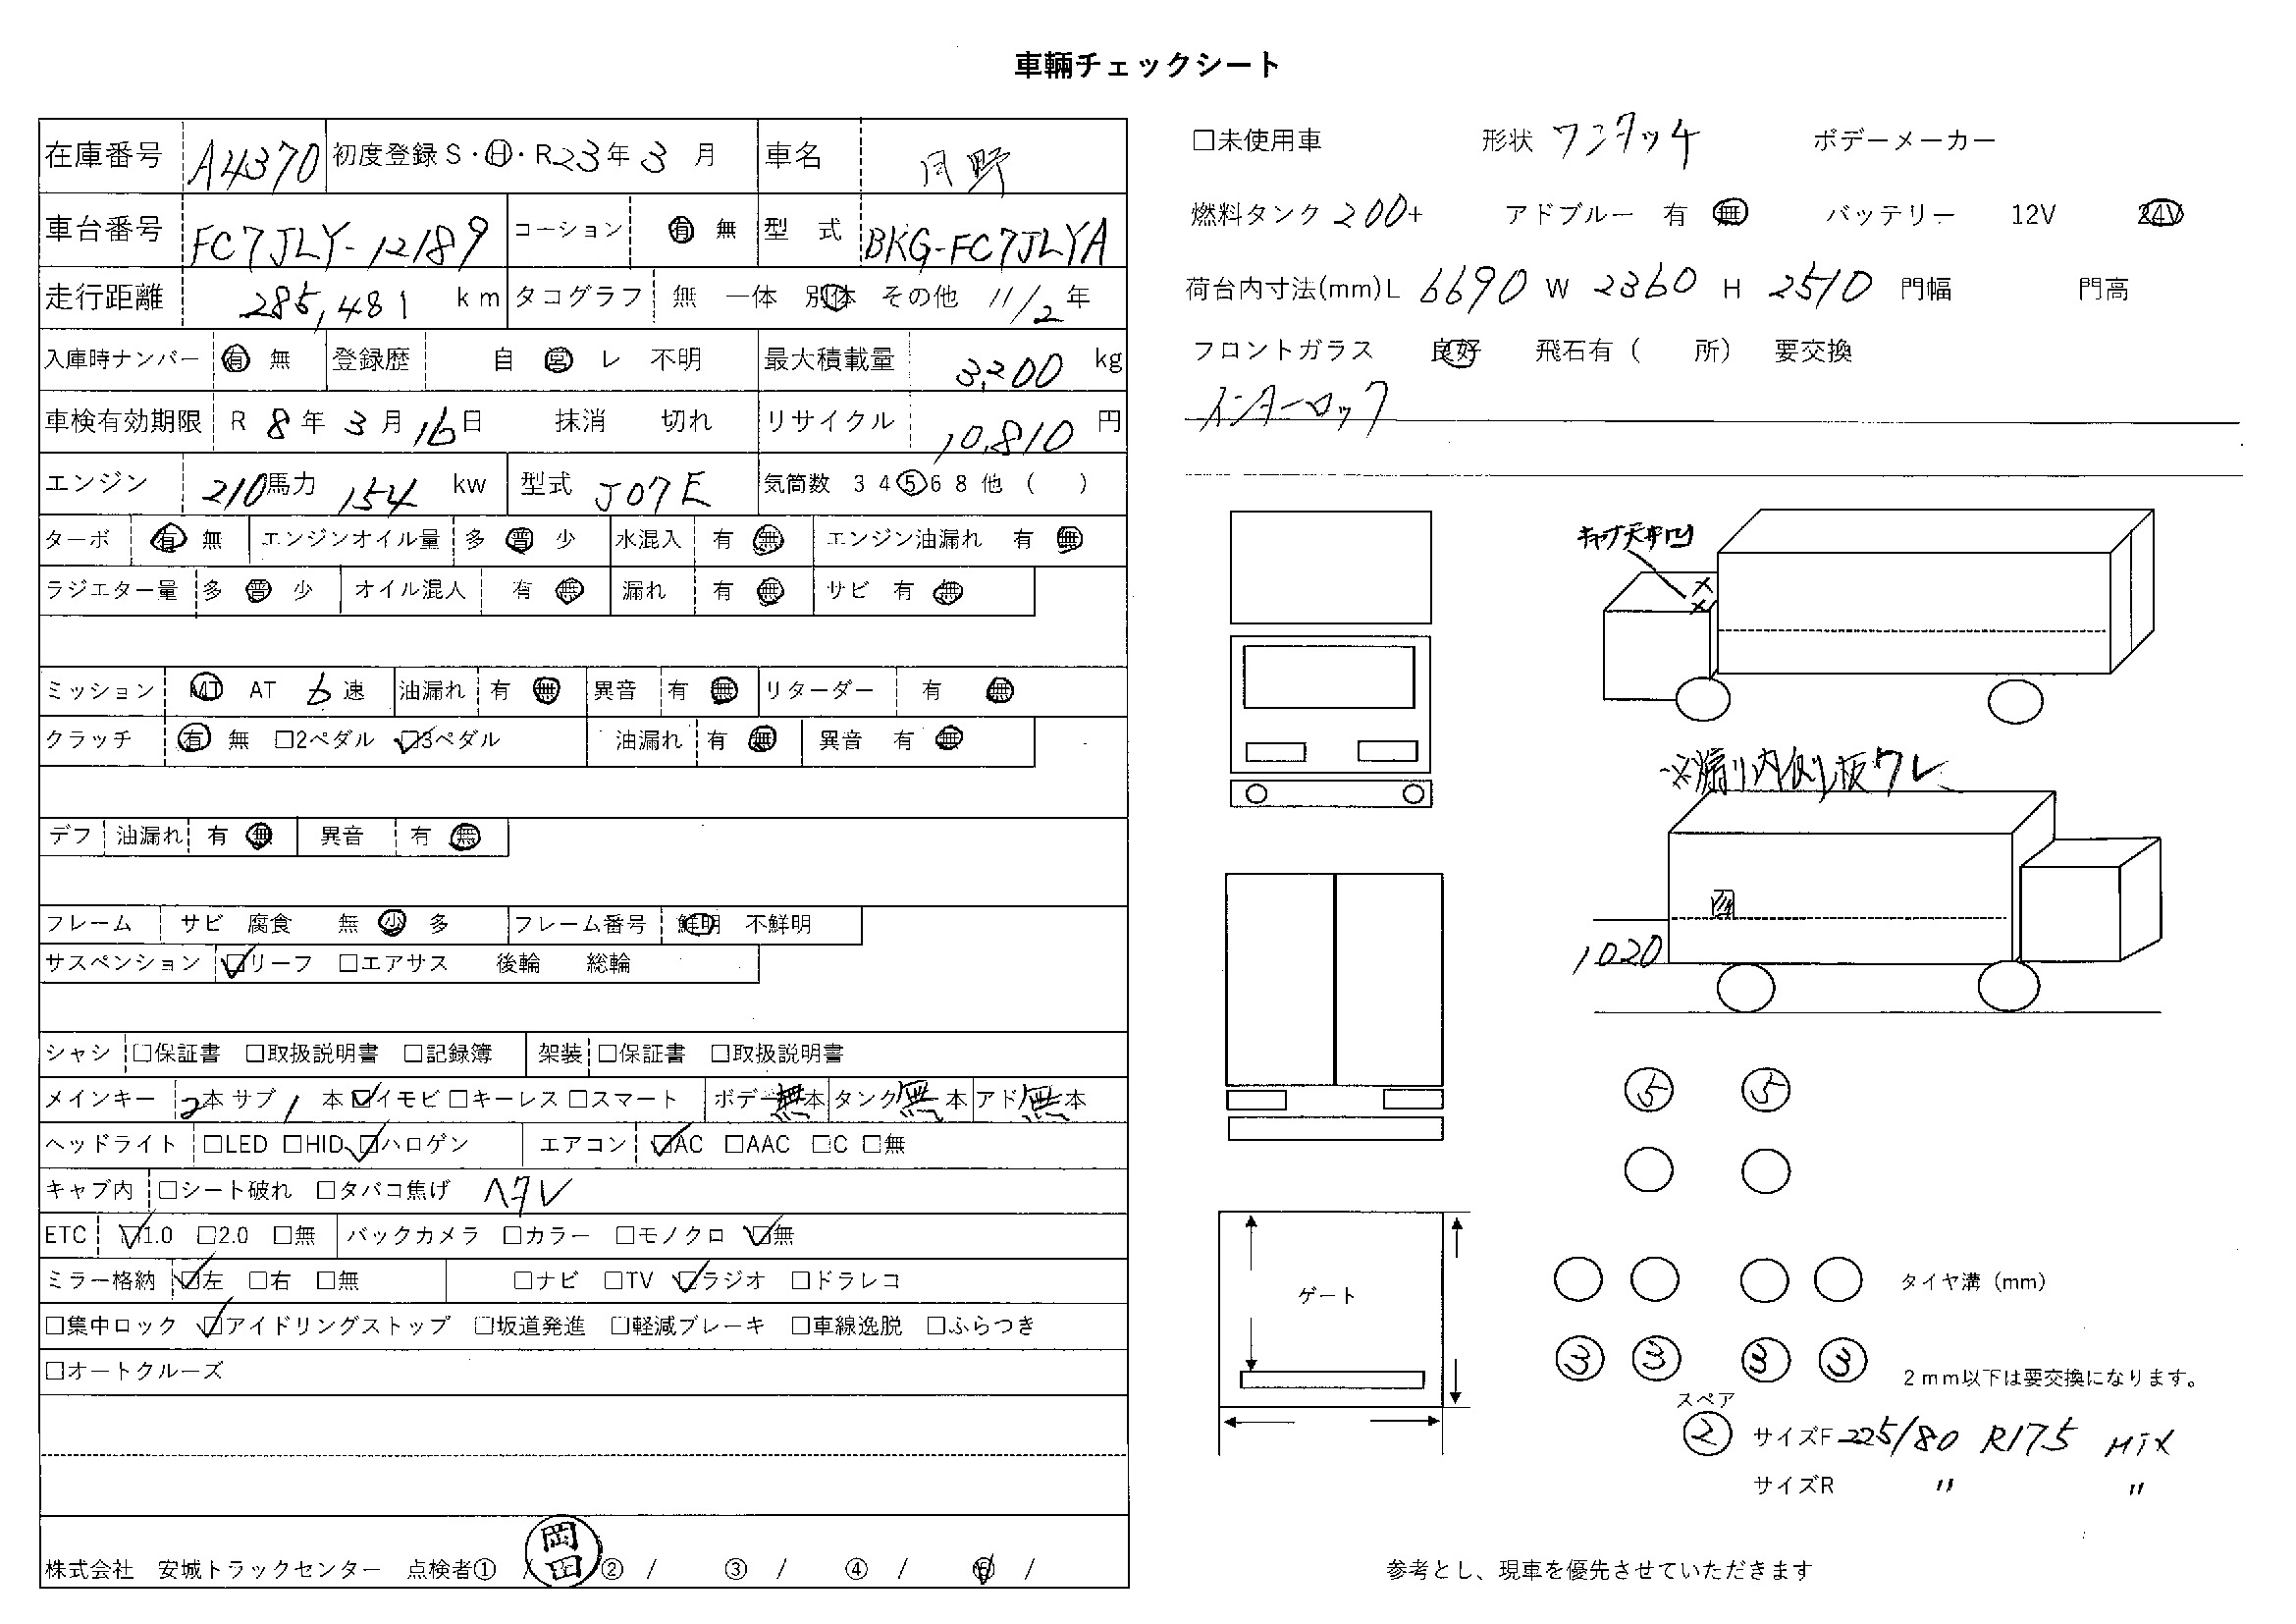 車輛チェックシート
在庫番号 A4370 初度登録 S・H・R 23年 3 月 車名 日野
車台番号 FC7JLY-12189 コーション 有 無 型 式 BKG-FC7JLYA
走行距離 285,481 km タコグラフ 無 一体 別体 その他 11/2 年
入庫時ナンバー 有 無 登録歴 自 営 レ 不明 最大積載量 3,200 kg
車検有効期限 R 8 年 3 月 16 日 抹消 切れ リサイクル 10,810 円
エンジン 210馬力 154 kw 型式 J07E 気筒数 3 4 5 6 8 他 ( )
ターボ 有 無 エンジンオイル量 多 普 少 水混入 有 無 エンジン油漏れ 有 無
ラジエター量 多 普 少 オイル混入 有 無 漏れ 有 無 サビ 有 無
ミッション MT AT 6 速 油漏れ 有 無 異音 有 無 リターダー 有 無
クラッチ 有 無 □2ペダル ☑3ペダル 油漏れ 有 無 異音 有 無
デフ 油漏れ 有 無 異音 有 無
フレーム サビ 腐食 無 少 多 フレーム番号 鮮明 不鮮明
サスペンション ☑リーフ □エアサス 後輪 総輪
シャシ □保証書 □取扱説明書 □記録簿 架装 □保証書 □取扱説明書
メインキー 2本 サブ 1 本 ☑イモビ □キーレス □スマート ボデー無本 タンク無本 アド無本
ヘッドライト □LED □HID ☑ハロゲン エアコン ☑AC □AAC □C □無
キャブ内 □シート破れ □タバコ焦げ ヘタレ
ETC ☑1.0 □2.0 □無 バックカメラ □カラー □モノクロ ☑無
ミラー格納 ☑左 □右 □無 □ナビ □TV ☑ラジオ □ドラレコ
□集中ロック ☑アイドリングストップ □坂道発進 □軽減ブレーキ □車線逸脱 □ふらつき
□オートクルーズ
株式会社 安城トラックセンター 点検者① / 岡田 ② / ③ / ④ / ⑤ /
□未使用車 形状 ワンタッチ ボデーメーカー
燃料タンク 200+ アドブルー 有 無 バッテリー 12V 24V
荷台内寸法(mm) L 6690 W 2360 H 2510 門幅 門高
フロントガラス 良好 飛石有 ( 所) 要交換
インターロック
キャブ天井凹
※煽り内側板ワレ
1020
5 5
ゲート
タイヤ溝（mm）
3 3 3 3
2mm以下は要交換になります。
スペア
2 サイズF 225/80 R17.5 MIX
サイズR 〃 〃
参考とし、現車を優先させていただきます